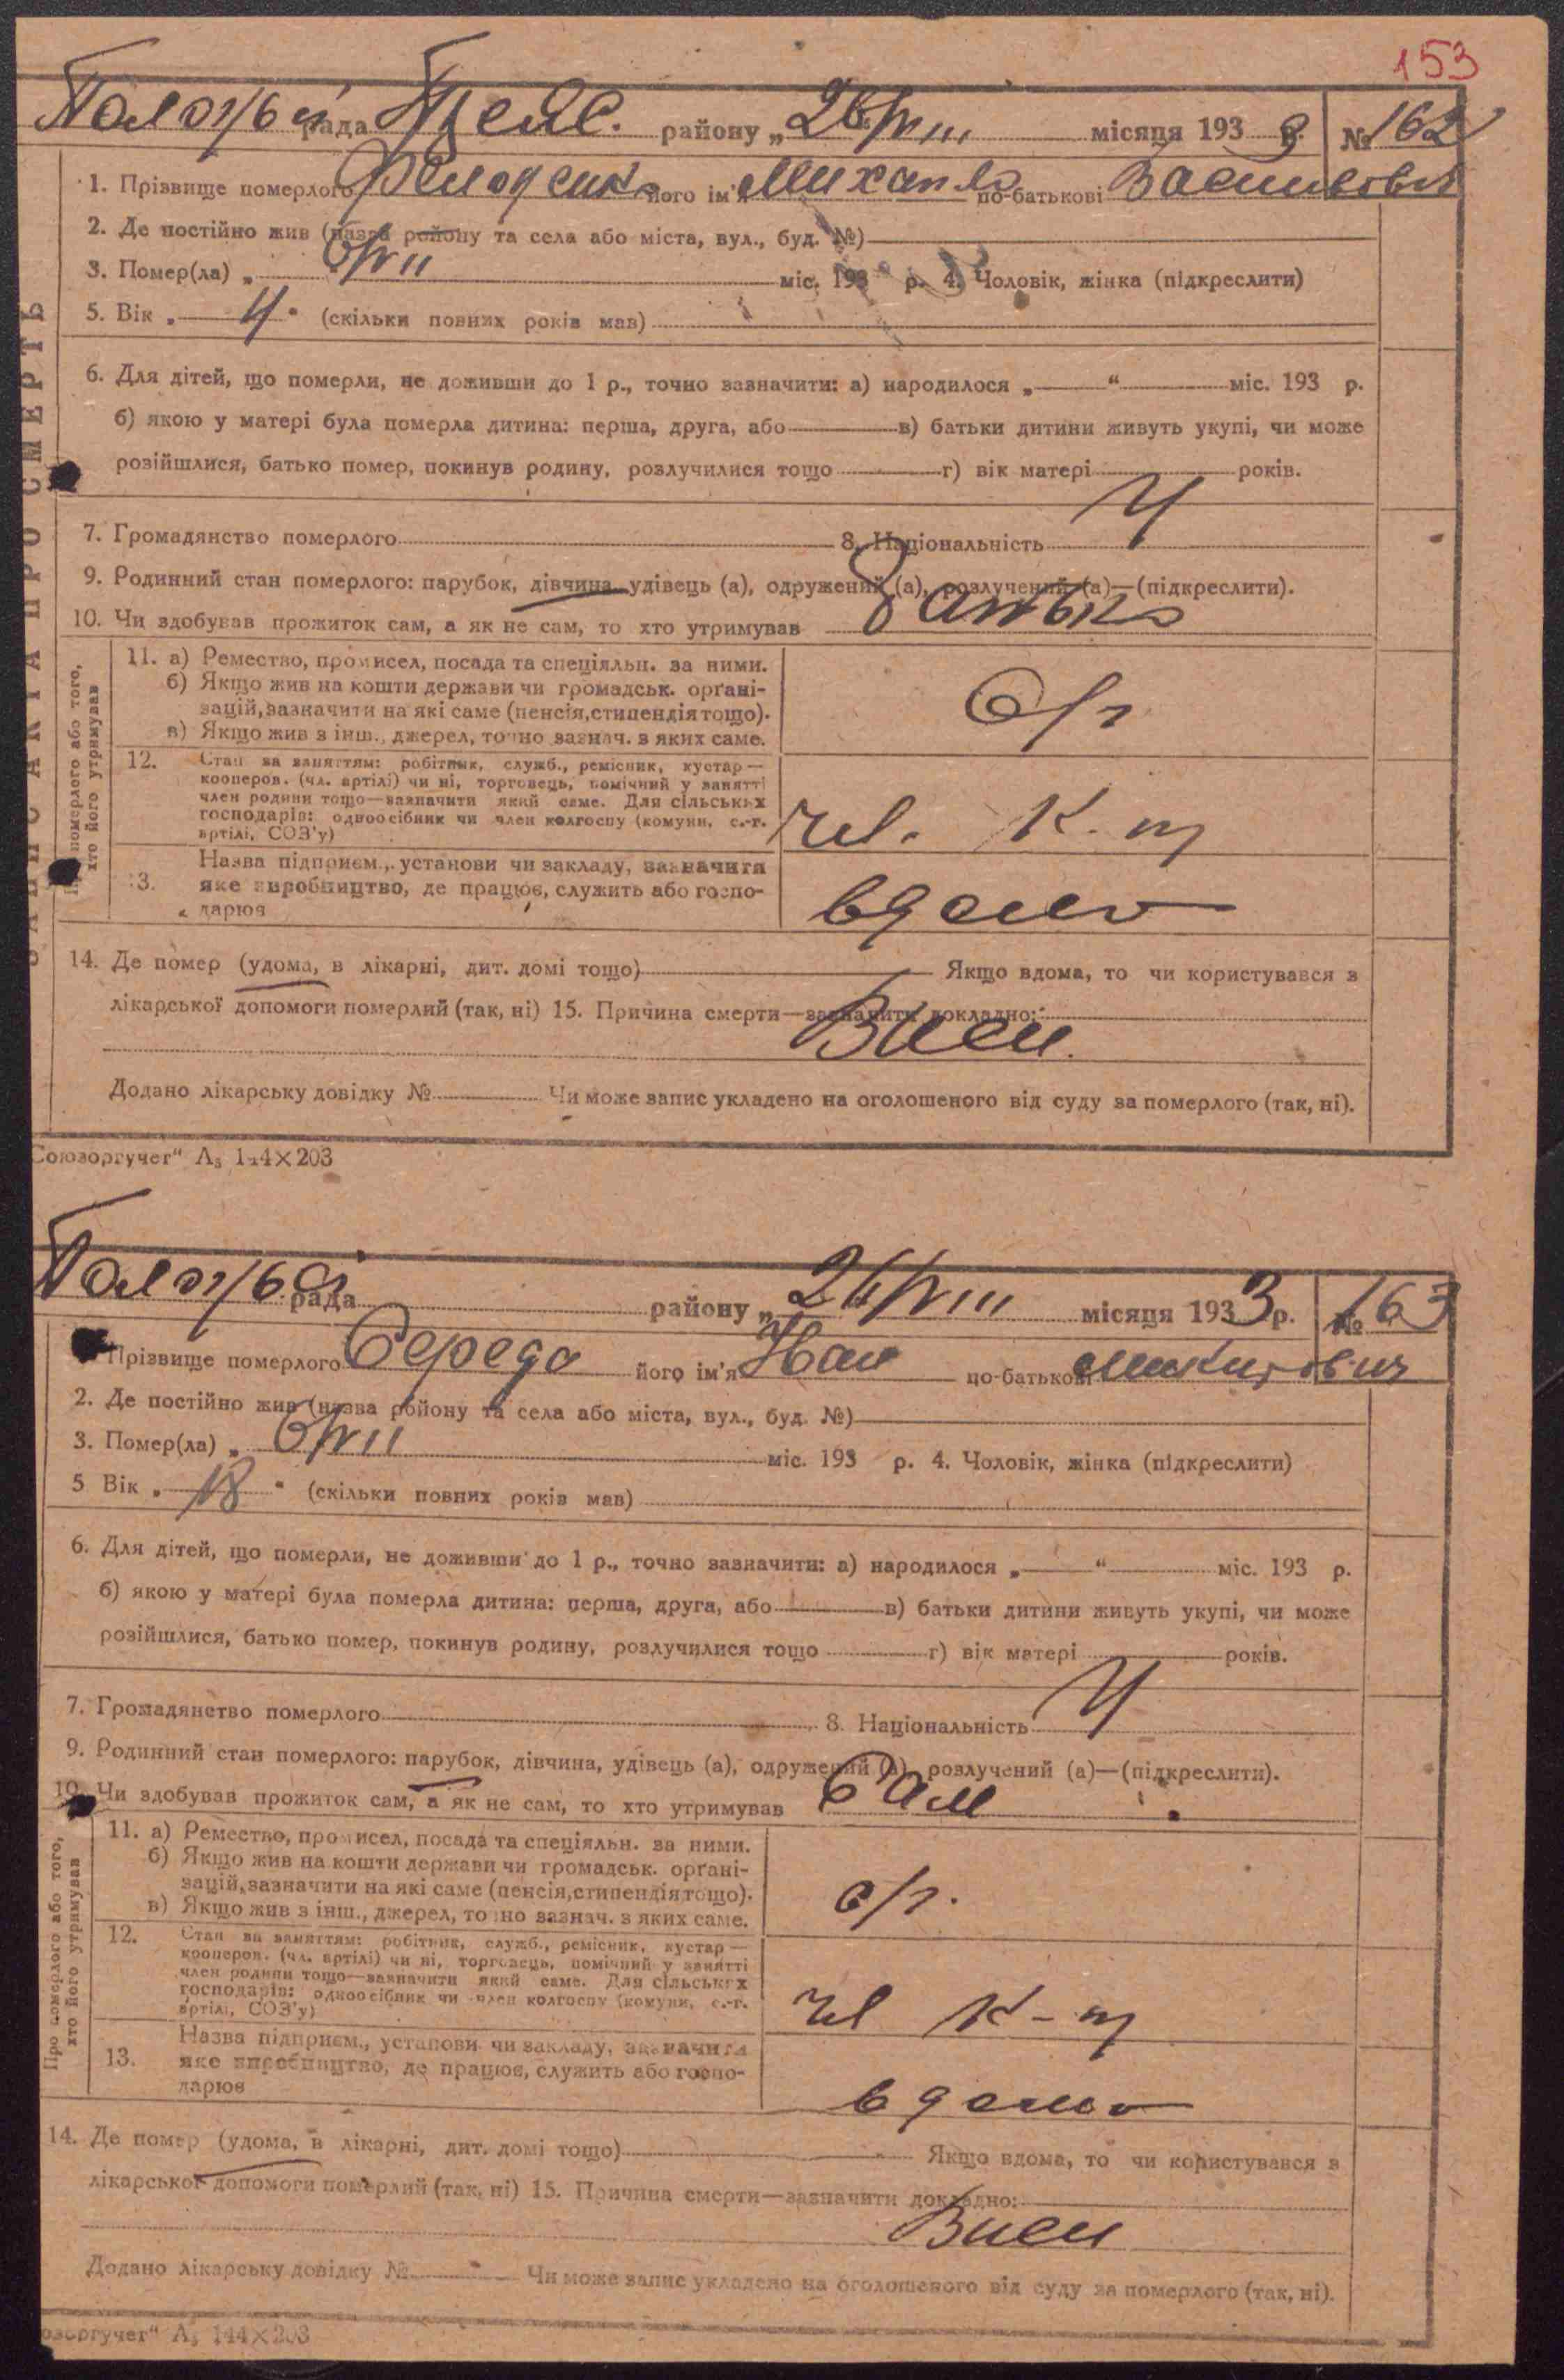 153
рада району „26/VIII місяця 1933 р. № 162
1. Прізвище померлого його ім'я Михайло по-батькові Васильович
2. Де постійно жив (назва району та села або міста, вул., буд. №)
3. Помер(ла) „ 6/VII міс. 193 р. 4. Чоловік, жінка (підкреслити)
5. Вік „ 4 " (скільки повних років мав)
6. Для дітей, що померли, не доживши до 1 р., точно зазначити: а) народилося „ “ міс. 193 р.
б) якою у матері була померла дитина: перша, друга, або в) батьки дитини живуть укупі, чи може
розійшлися, батько помер, покинув родину, розлучилися тощо г) вік матері років.
7. Громадянство померлого 8. Національність У
9. Родинний стан померлого: парубок, дівчина, удівець (а), одружений (а), розлучений (а)—(підкреслити).
10. Чи здобував прожиток сам, а як не сам, то хто утримував батько
ЗАПИС АКТА ПРО СМЕРТЬ
Про померлого або того,
хто його утримував
11. а) Ремество, промисел, посада та спеціяльн. за ними.
б) Якщо жив на кошти держави чи громадськ. орґані-
зацій, зазначити на які саме (пенсія, стипендія тощо).
в) Якщо жив з інш., джерел, точно зазнач. з яких саме.
с/г
12. Стан за заняттям: робітник, служб., ремісник, кустар—
кооперов. (чл. артілі) чи ні, торговець, помічний у занятті
член родини тощо—зазначити який саме. Для сільських
господарів: одноосібник чи член колгоспу (комуни, с.-г.
артілі, СОЗ'у)
чл. к.г
13. Назва підприєм., установи чи закладу, зазначити
яке виробництво, де працює, служить або госпо-
дарює
вдома
14. Де помер (удома, в лікарні, дит. домі тощо) Якщо вдома, то чи користувався з
лікарської допомоги померлий (так, ні) 15. Причина смерти—зазначити докладно:
Додано лікарську довідку № Чи може запис укладено на оголошеного від суду за померлого (так, ні).
Союзоргучет“ А5 144×203
рада району „ місяця 1933 р. № 163
1. Прізвище померлого Середа його ім'я Іван по-батькові Микитович
2. Де постійно жив (назва району та села або міста, вул., буд. №)
3. Помер(ла) „ 6/VII міс. 193 р. 4. Чоловік, жінка (підкреслити)
5 Вік „ 18 " (скільки повних років мав)
6. Для дітей, що померли, не доживши до 1 р., точно зазначити: а) народилося „ “ міс. 193 р.
б) якою у матері була померла дитина: перша, друга, або в) батьки дитини живуть укупі, чи може
розійшлися, батько помер, покинув родину, розлучилися тощо г) вік матері років.
7. Громадянство померлого 8. Національність У
9. Родинний стан померлого: парубок, дівчина, удівець (а), одружений (а), розлучений (а)—(підкреслити).
10. Чи здобував прожиток сам, а як не сам, то хто утримував сам
Про померлого або того,
хто його утримував
11. а) Ремество, промисел, посада та спеціяльн. за ними.
б) Якщо жив на кошти держави чи громадськ. орґані-
зацій, зазначити на які саме (пенсія, стипендія тощо).
в) Якщо жив з інш., джерел, точно зазнач. з яких саме.
с/г.
12. Стан за заняттям: робітник, служб., ремісник, кустар—
кооперов. (чл. артілі) чи ні, торговець, помічний у занятті
член родини тощо—зазначити який саме. Для сільських
господарів: одноосібник чи член колгоспу (комуни, с.-г.
артілі, СОЗ'у)
чл к-г
13. Назва підприєм., установи чи закладу, зазначити
яке виробництво, де працює, служить або госпо-
дарює
вдома
14. Де помер (удома, в лікарні, дит. домі тощо) Якщо вдома, то чи користувався з
лікарської допомоги померлий (так, ні) 15. Причина смерти—зазначити докладно:
Додано лікарську довідку № Чи може запис укладено на оголошеного від суду за померлого (так, ні).
оюзоргучет“ А5 144×203